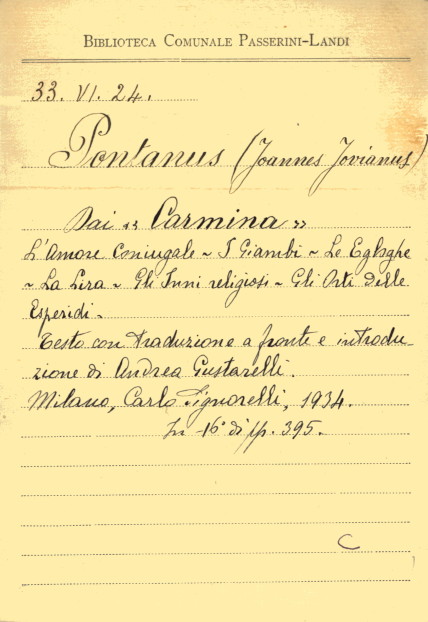 BIBLIOTECA COMUNALE PASSERINI-LANDI
33. VI. 24.
Pontanus (Joannes Jovianus)
Dai « Carmina »
L'Amore coniugale ~ I Giambi ~ Le Egloghe
~ La Lira ~ Gli Inni religiosi ~ Gli Orti delle
Esperidi.
Testo con traduzione a fronte e introdu-
zione di Andrea Gustarelli.
Milano, Carlo Signorelli, 1934.
In -16° di pp. 395.
C